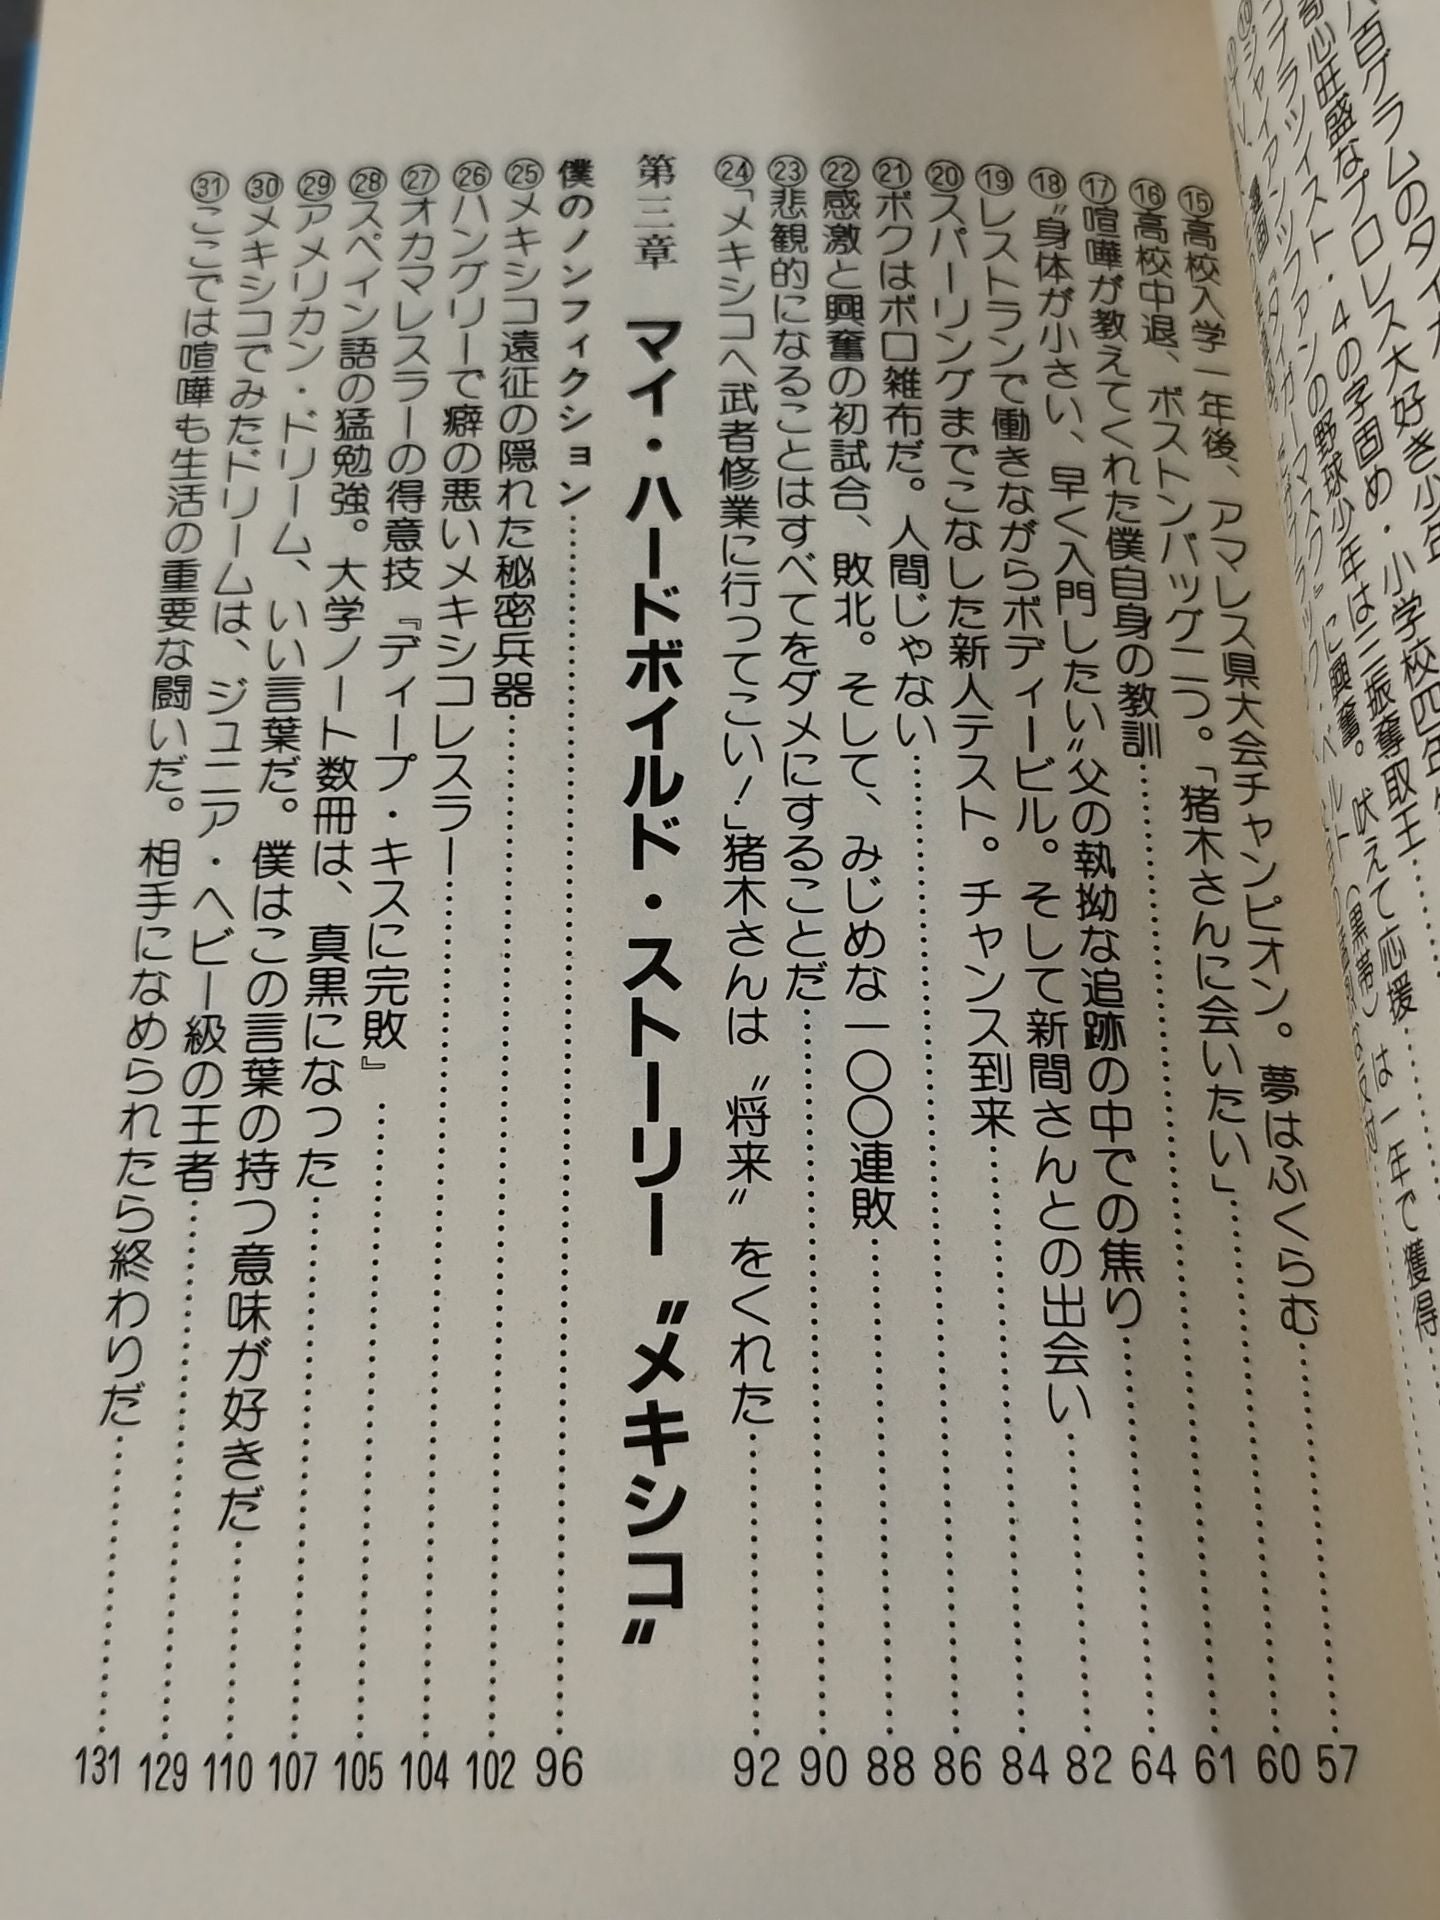 ⑮高校入学一年後、アマレス県大会チャンピオン。夢はふくらむ……57
⑯高校中退、ボストンバッグ二つ。「猪木さんに会いたい」……60
⑰喧嘩が教えてくれた僕自身の教訓……61
⑱〝身体が小さい、早く入門したい〟父の執拗な追跡の中での焦り……64
⑲レストランで働きながらボディービル。そして新間さんとの出会い……82
⑳スパーリングまでこなした新人テスト。チャンス到来……84
㉑ボクはボロ雑布だ。人間じゃない……86
㉒感激と興奮の初試合、敗北。そして、みじめな一〇〇連敗……88
㉓悲観的になることはすべてをダメにすることだ……90
㉔「メキシコへ武者修業に行ってこい！」猪木さんは〝将来〟をくれた……92
第三章 マイ・ハードボイルド・ストーリー〝メキシコ〟
僕のノンフィクション……96
㉕メキシコ遠征の隠れた秘密兵器……102
㉖ハングリーで癖の悪いメキシコレスラー……104
㉗オカマレスラーの得意技『ディープ・キスに完敗』……105
㉘スペイン語の猛勉強。大学ノート数冊は、真黒になった……107
㉙アメリカン・ドリーム、いい言葉だ。僕はこの言葉の持つ意味が好きだ……110
㉚メキシコでみたドリームは、ジュニア・ヘビー級の王者……129
㉛ここでは喧嘩も生活の重要な闘いだ。相手になめられたら終わりだ……131